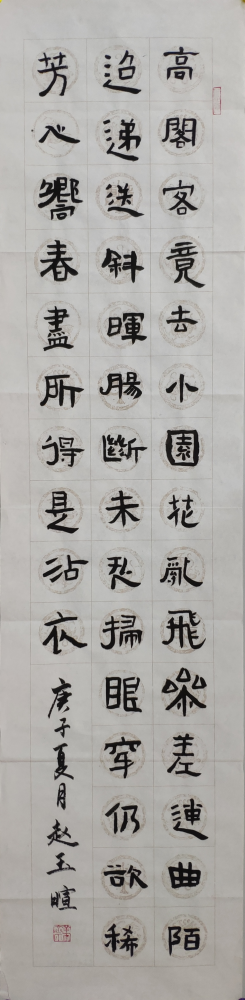 高閣客竟去小園花亂飛參差連曲陌
迢遞送斜暉腸斷未忍掃眼穿仍欲稀
芳心嚮春盡所得是沾衣
庚子夏月赵玉暄